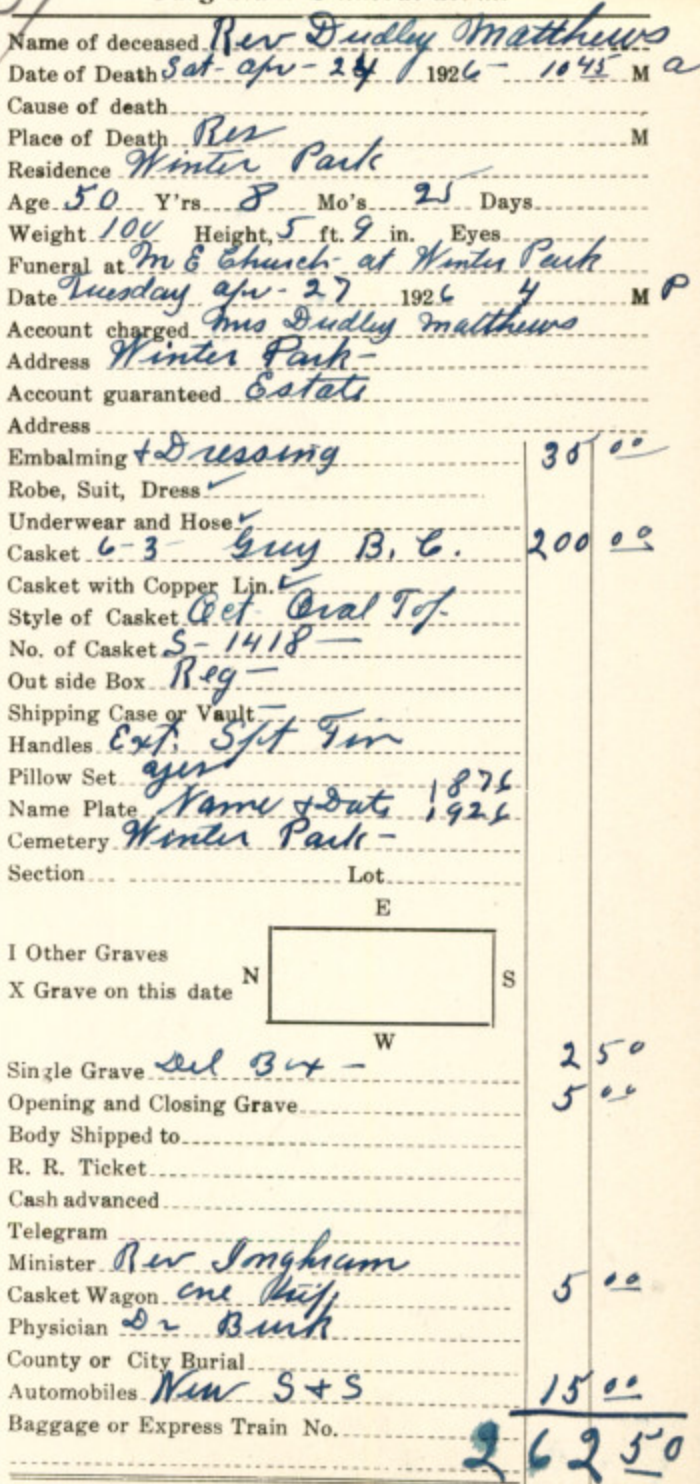 Name of deceased Rev Dudley Matthews
Date of Death Sat- apr- 24 1926- 10 45 M a
Cause of death
Place of Death Res M
Residence Winter Park
Age 50 Y'rs 8 Mo's 25 Days
Weight 100 Height, 5 ft. 9 in. Eyes
Funeral at M E Church- at Winter Park
Date Tuesday apr- 27 1926 4 M P
Account charged Mrs Dudley Matthews
Address Winter Park-
Account guaranteed Estate
Address
Embalming + Dressing 35 00
Robe, Suit, Dress ✓
Underwear and Hose ✓
Casket 6-3- Grey B. C. 200 00
Casket with Copper Lin. ✓
Style of Casket Oct Oval Top
No. of Casket S-1418-
Out side Box Reg-
Shipping Case or Vault -
Handles Ext.
Pillow Set yes 1876
Name Plate Name + Date 1926
Cemetery Winter Park-
Section Lot
E
I Other Graves
X Grave on this date N S
W
Single Grave Del Box - 2 50
Opening and Closing Grave 5 00
Body Shipped to
R. R. Ticket
Cash advanced
Telegram
Minister Rev Inghram
Casket Wagon one 5 00
Physician Dr Burk
County or City Burial
Automobiles New S + S 15 00
Baggage or Express Train No. 262 50